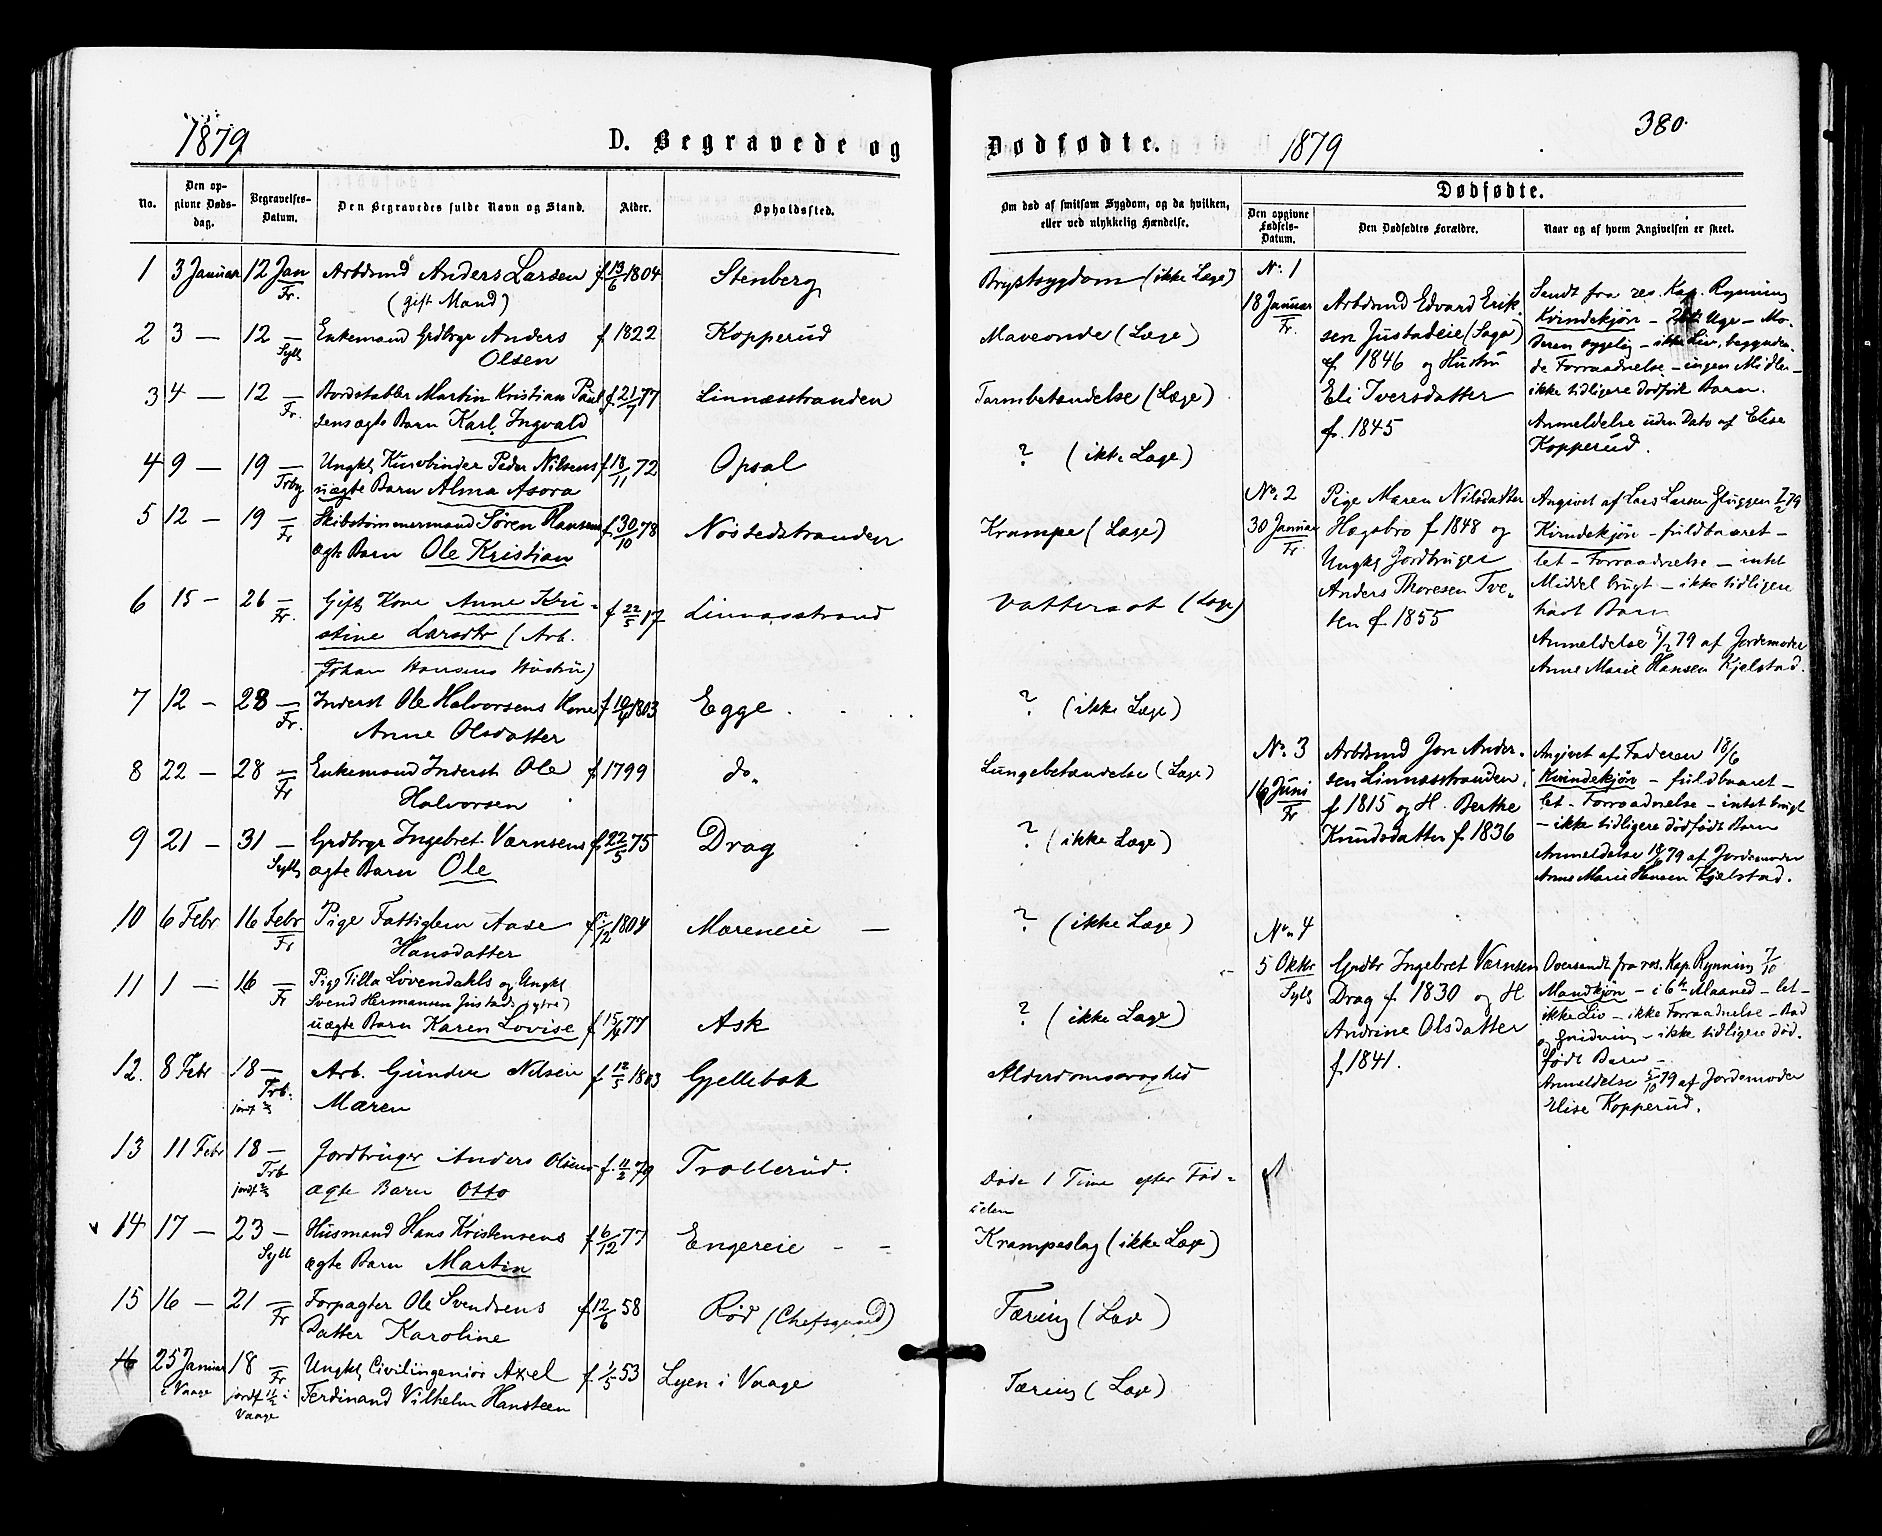 1879
D. Begravede og
No.
Den op-
givne Døds-
dag.
Begravelses-
Datum.
Den Begravedes fulde Navn og Stand.
Alder.
Opholdssted.
1 3 Januar 12 Jan Arbdmd Anders Larsen f 13/6 1804 Stenberg
Fr. (gift Mand)
2 3 — 12 — Enkemand Grdbrgr Anders f 1822 Kopperud
Syll Olsen
3 4 — 12 — Bordstabler Martin Kristian Paul- f. 21/7 77 Linnæsstranden
Fr. sens ægte Barn Karl Ingvald
4 9 — 19 — Ungkl Kurvbinder Peder Nilsens f 18/11 72 Opsal
Trby uægte Barn Alma Asora
5 12 — 19 — Skibstømmermand Søren Hansens f. 30/10 78 Nøstedstranden
Fr ægte Barn Ole Kristian
6 15 — 26 — Gift Kone Anne Kri- f 22/5 17 Linnæsstrand
Fr. stine Larsdtr (Arb.
Johan Hansens Hustru)
7 12 — 28 — Inderst Ole Halvorsens Kone 1803 Egge
Fr. Anne Olsdatter
8 22 — 28 — Enkemand Inderst Ole f 1799 do.
Fr Halvorsen
9 21 — 31 — Grdbrgr Ingebret Værnsens f. 22/5 75 Drag
Sylls ægte Barn Ole
10 6 Febr 16 Febr Pige Fattiglem Aase 1804 Moreneie —
Fr Hansdatter
11 1 — 16 — Pige Tilla Løvendahls og Ungkl
Fr Svend Hermansen Justads
uægte Barn Karen Lovise 77 Ask
12. 8 Febr 18 — Arb. Gunder Nilsen f 12/5 1803 Gjellebæk
Trb. Mæren
13 11 Febr 18 — Jordbruger Anders Olsens f. 11/2 79 Trollerud.
Trb ægte Barn Otto
14 17 — 23 — Husmand Hans Kristensens f 6/12 77 Engereie - -
Sylls ægte Barn Martin
15 16 — 21 — Forpagter Ole Svendsens f 12/6 58 Rød (Chefsgaard)
Fr Datter Karoline
16 25 Januar 18 — Ungkl Civilingeniør Axel f. 1/5 53 Lyen i Vaage
i Vaage Fr Ferdinand Vilhelm Hansteen
jordf 11/2 i
Vaage
Dødfødte.
1879
380.
Om død af smitsom Sygdom, og da hvilken,
eller ved ulykkelig Hændelse.
Dødfødte.
Den opgivne
Fødsels-
Datum.
Den Dødfødtes Forældre.
Naar og af hvem Angivelsen er skeet.
Brystsygdom (ikke Læge)
Maveonde (Læge)
Tarmbetændelse (Læge)
? (ikke Læge)
Krampe (Læge)
Vattersot (Læge)
? (ikke Læge)
Lungebetændelse (Læge)
? (ikke Læge)
? (ikke Læge)
? (ikke Læge)
Alderdomssvaghed
Døde 1 Time efter Fød-
selen
Krampeslag (ikke Læge)
Tæring (Læge)
Tæring (Læge)
No. 1
18 Januar
Fr.
Arbdmd Edvard Erik-
sen Justadeie (Saga)
f. 1846 og Hustru
Eli Iversdatter
f. 1845
Sendt fra res. Kap. Rynning
Kvindekjøn - Uge - Mo-
deren sygelig - ikke Liv, begynden-
de Forraadnelse - ingen Midler -
ikke tidligere dødfødt Barn.
Anmeldelse uden Dato af Elise
Kopperud.
No. 2
30 Januar
Fr.
Pige Maren Nilsdatter
Hægsbro f 1848 og
Ungkl Jordbruger
Anders Thoresen Tve-
ten f. 1855
Angivet af Lars Larsen Gluggen 79
Kvindekjøn - fuldbaaret -
let - Forraadnelse - intet
Middel brugt - ikke tidligere
havt Barn
Anmeldelse 5/2 79 af Jordemoder
Anne Marie Hansen Kjelstad.
No. 3
16 Juni
Fr
Arbdsmd Jon Ander-
sen Linnæsstranden,
f 1815 og H. Berthe
Knudsdatter f. 1836
Angivet af Faderen 18/6
Kvindekjøn - fuldbaaret -
let - Forraadnelse - intet brugt
- ikke tidligere dødfødt Barn
Anmeldelse 18/6 79 af Jordemoder
Anne Marie Hansen Kjelstad.
No. 4
5 Oktbr
Sylls
Grdbr Ingebret Værnsen
Drag f. 1830 og H
Andrine Olsdatter
f. 1841.
Oversendt fra res. Kap. Rynning 7/10
Mandkjøn - i 6te Maaned - let -
ikke Liv - ikke Forraadnelse - Bad
og Gnidning - ikke tidligere død-
født Barn -
Anmeldelse 5/10 79 af Jordemoder
Elise Kopperud.